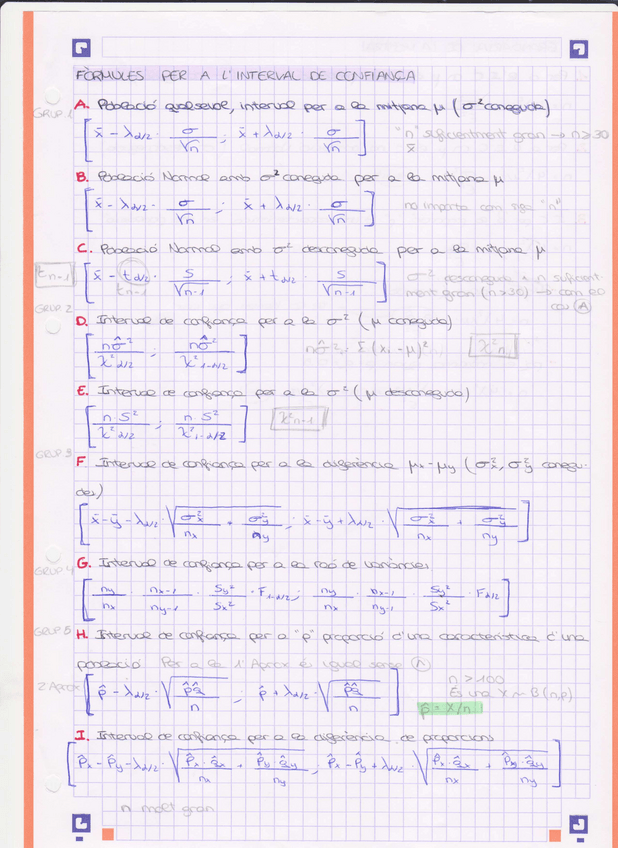 FÒRMULES PER A L'INTERVAL DE CONFIANÇA
GRUP 1
A. Població qualsevol, interval per a la mitjana μ (σ² coneguda)
[x̄ − λα/2 · σ/√n ; x̄ + λα/2 · σ/√n] "n" suficientment gran → n≥30
x̄
B. Població Normal amb σ² coneguda per a la mitjana μ
[x̄ − λα/2 · σ/√n ; x̄ + λα/2 · σ/√n] no importa com sigui "n"
C. Població Normal amb σ² desconeguda per a la mitjana μ
tn-1 [x̄ − tα/2 · S/√n-1 ; x̄ + tα/2 · S/√n-1] σ² desconeguda + n suficient
tn-1 ment gran (n>30) → com en
GRUP 2 cas A
D. Interval de confiança per a la σ² (μ coneguda)
[nσ̂²/χ²α/2 ; nσ̂²/χ²1-α/2] nσ̂² = Σ(xi − μ)² χ²n
E. Interval de confiança per a la σ² (μ desconeguda)
[n S²/χ²α/2 ; n S²/χ²1-α/2] χ²n-1
GRUP 3
F. Interval de confiança per a la diferència μx-μy (σ²x, σ²y conegu-
des)
[x̄-ȳ-λα/2 · √(σ²x/nx + σ²y/ny) ; x̄-ȳ+λα/2 · √(σ²x/nx + σ²y/ny)]
G. Interval de confiança per a la raó de variàncies
GRUP 4
[ny/nx · nx-1/ny-1 · Sy²/Sx² · F1-α/2 ; ny/nx · nx-1/ny-1 · Sy²/Sx² · Fα/2]
GRUP 5
H. Interval de confiança per a "p" proporció d'una característica d'una
població Per a la 1ª Aprox és igual sense A
2 Aprox [p̂ − λα/2 · √(p̂q̂/n) ; p̂ + λα/2 · √(p̂q̂/n)] n > 100
És una X ~ B(n,p)
p̂ = X/n
I. Interval de confiança per a la diferència de proporcions
[p̂x − p̂y − λα/2 · √(p̂x · q̂x/nx + p̂y · q̂y/ny) ; p̂x − p̂y + λα/2 · √(p̂x · q̂x/nx + p̂y · q̂y/ny)]
n molt gran